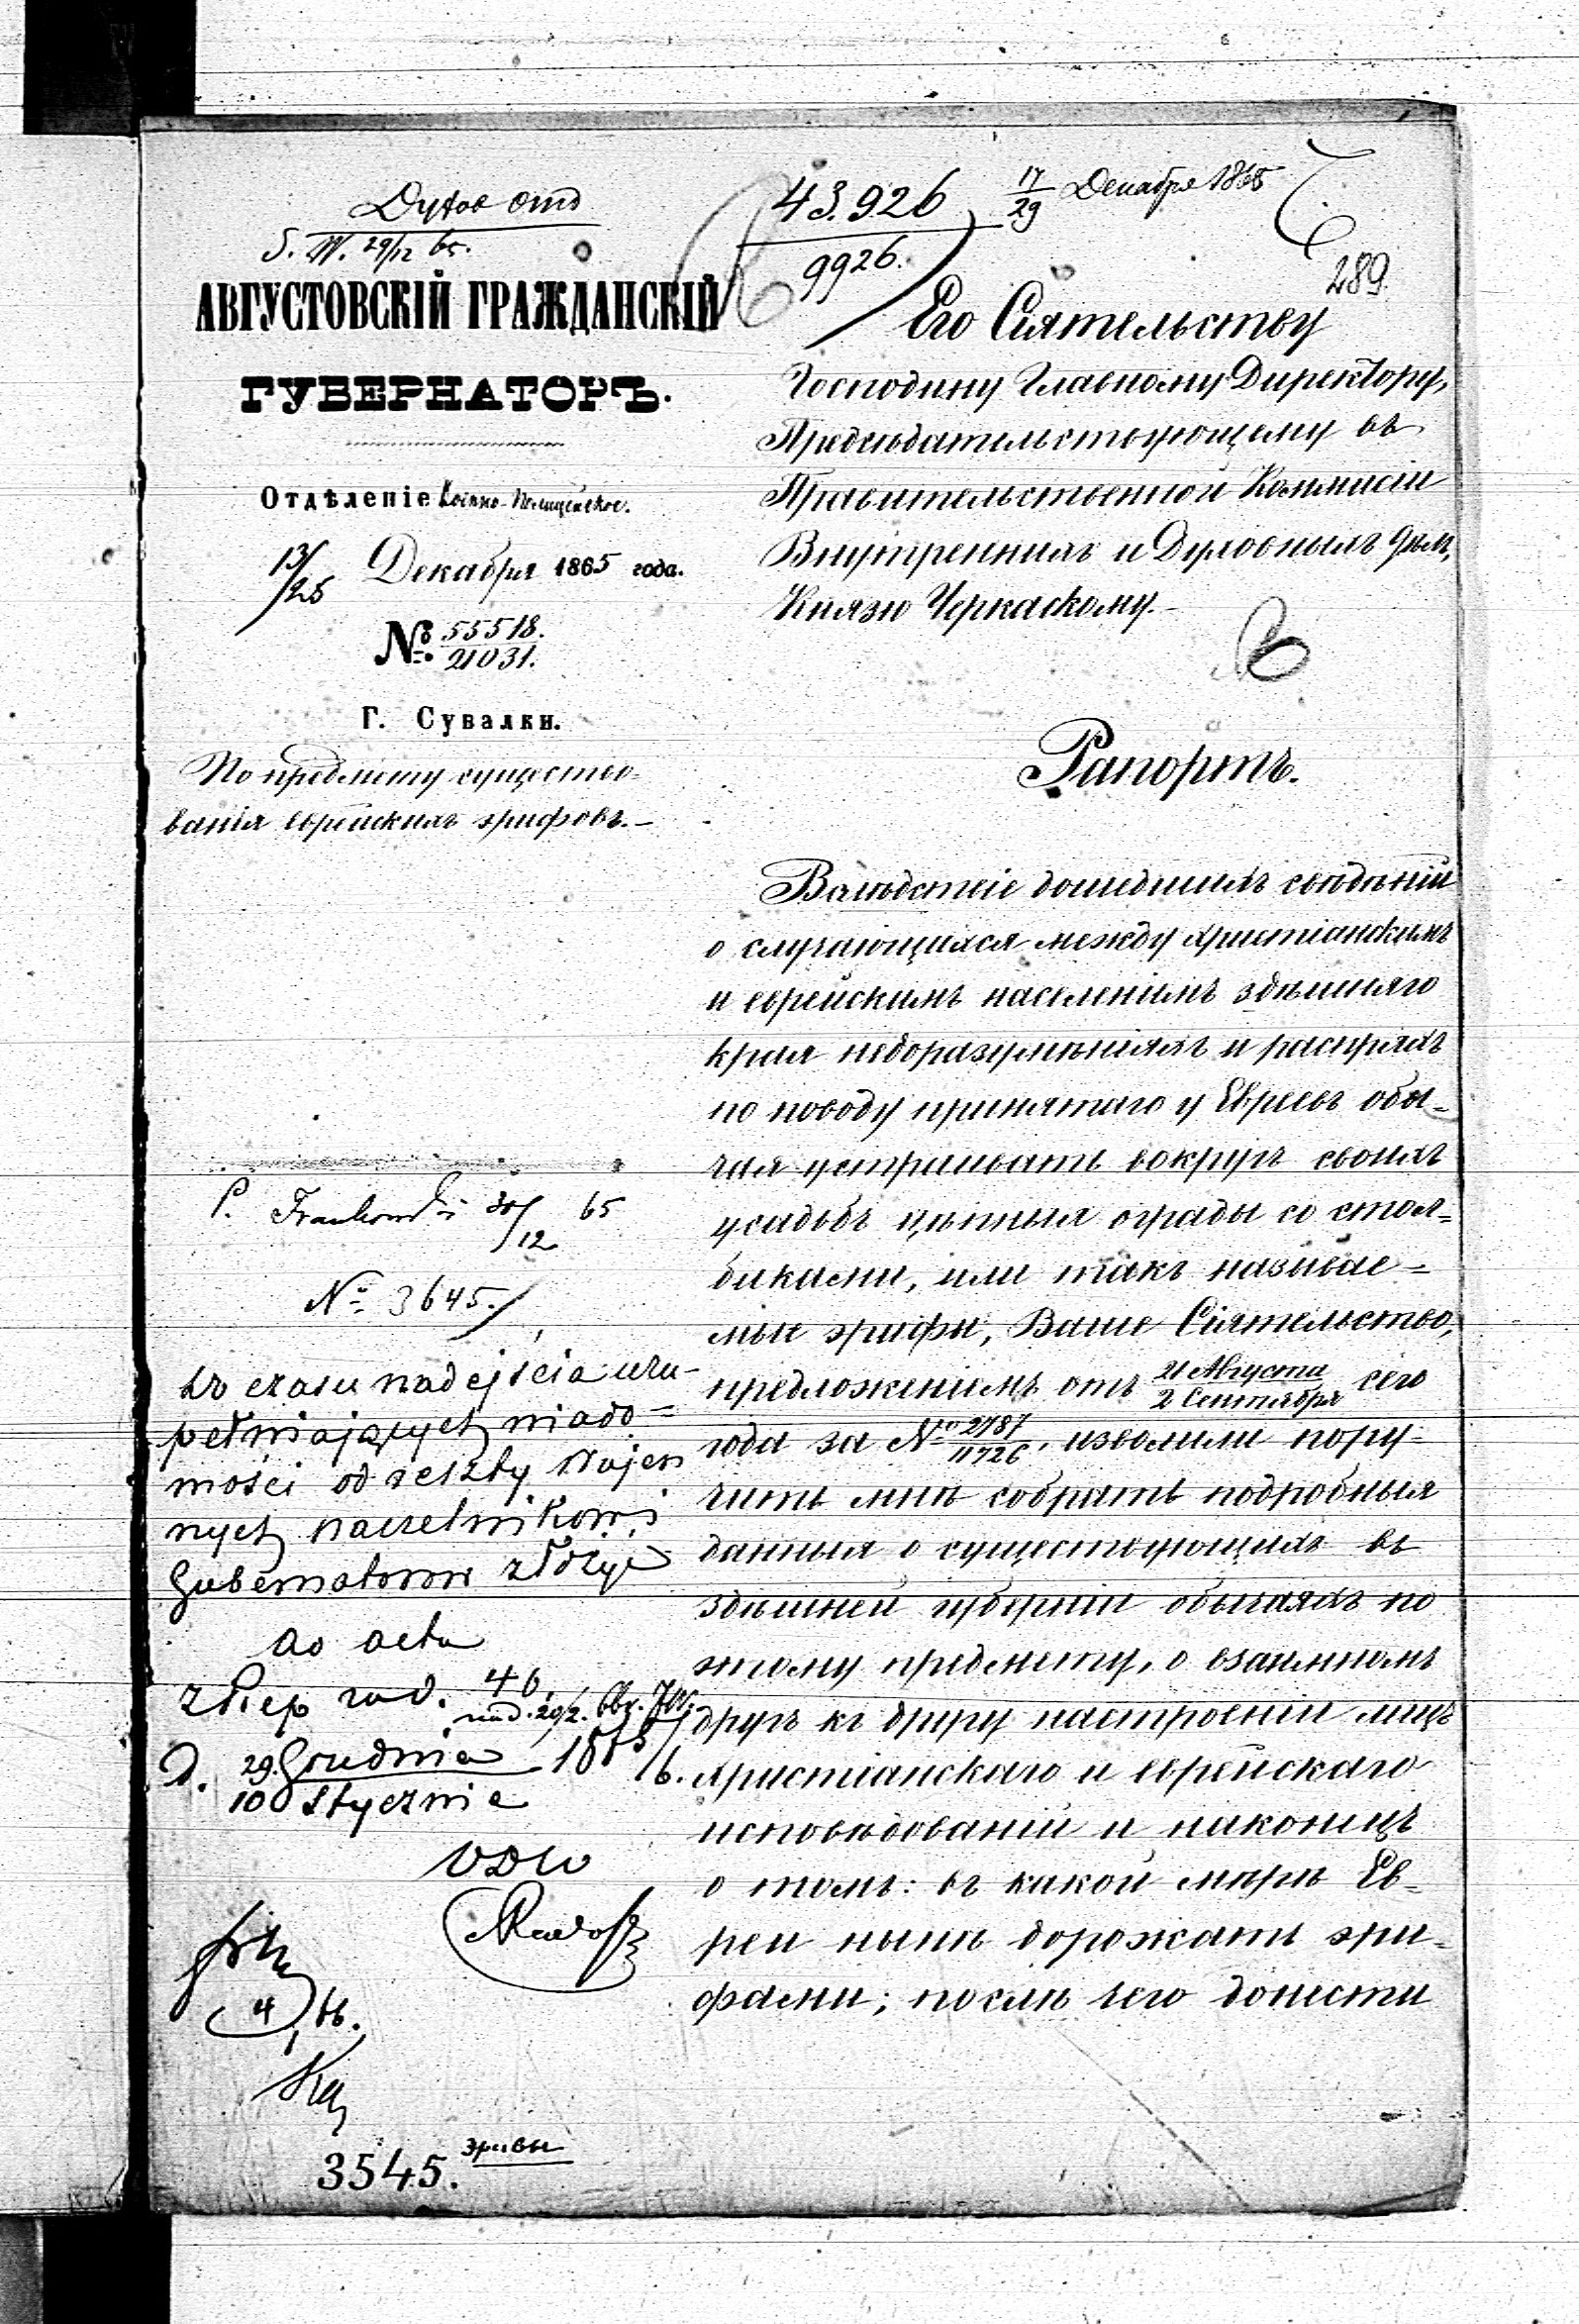 Духов отд
S. W. 29/12 65.
АВГУСТОВСКІЙ ГРАЖДАНСКІЙ
ГУБЕРНАТОРЪ.
Отдѣленіе Военно-Полицейское.
13/25 Декабря 1865 года.
№ 55518.
21031.
Г. Сувалки.
По предмету существо-
ванія еврейскихъ эрифовъ.—
43.926
9926.
17/29 Декабря 1865
289
Его Сіятельству
Господину Главному Директору,
Предсѣдательствующему въ
Правительственной Коммисіи
Внутреннихъ и Духовныхъ дѣлъ,
Князю Черкаскому.—
Рапортъ.
Вслѣдствіе дошедшихъ свѣдѣній
о случающихся между христіанскимъ
и еврейскимъ населеніемъ здѣшняго
края недоразумѣніяхъ и распряхъ
по поводу принятаго у Евреевъ обы-
чая устраивать вокругъ своихъ
усадьбъ цѣпныя ограды со стол-
биками, или такъ называе-
мые эрифы, Ваше Сіятельство,
предложеніемъ отъ 21 Августа
2 Сентября сего
года за № 2787
11726, изволили пору-
чить мнѣ собрать подробныя
данныя о существующихъ въ
здѣшней губерніи обычаяхъ по
этому предмету, о взаимномъ
другъ къ другу настроеніи лицъ
христіанскаго и еврейскаго
исповѣдованій и наконецъ
о томъ: въ какой мѣрѣ Ев-
реи нынѣ дорожатъ эри-
фами; послѣ чего донести
P. 30/12 65
№ 3645.
do czasu nadejścia uzu-
pełniających wiado-
mości od reszty Wojen
nych Naczelników i
Gubernatorów złożyć
do akt
D. 29 Grudnia 1865/6.
10 Stycznia
VDW
4/1 66.
3545. эривы